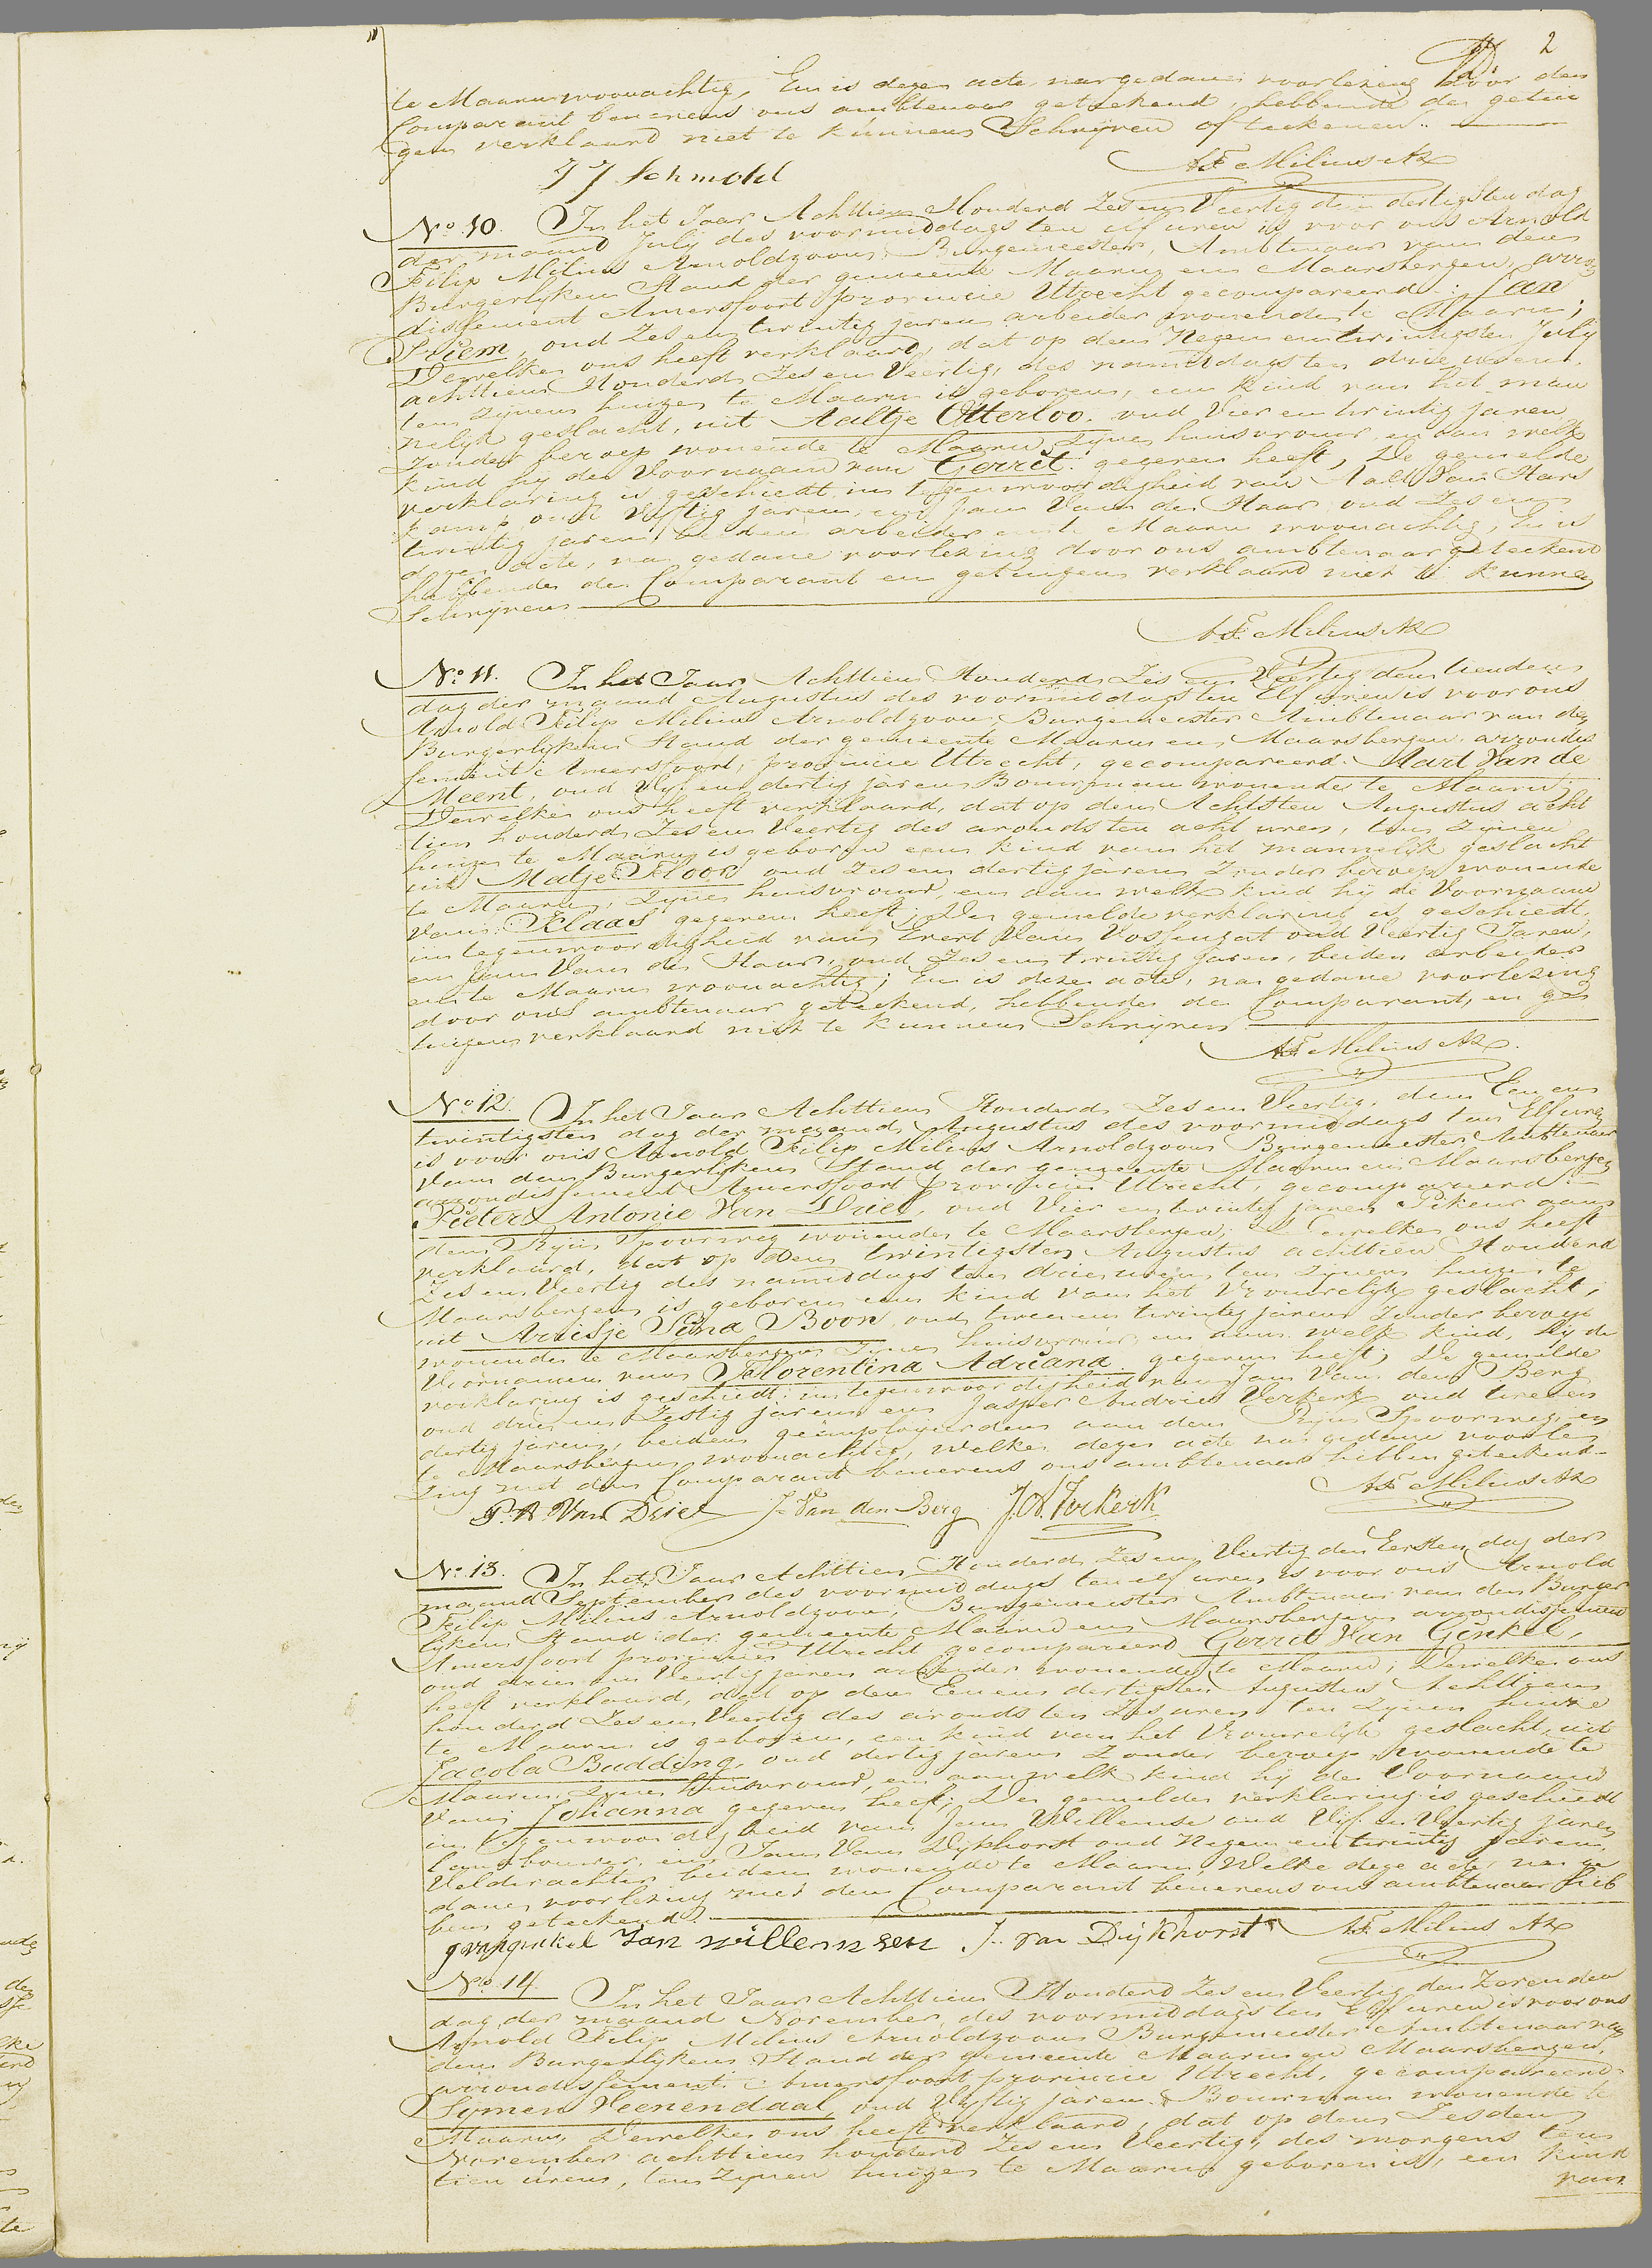 2
te Maarn woonachtig, En is deze acte, na gedane voorlezing door den
Comparant benevens ons ambtenaar geteekend, hebbende de getui
gen verklaard niet te kunnen Schrijven of teekenen.
J J Schmohl AF Milius Az
No 10. In het Jaar Achttien Honderd Zes en Veertig den dertigsten dag
der maand Julij des voormiddags ten elf uren is voor ons Arnold
Filip Milius Arnoldzoon, Burgemeester, Ambtenaar van den
Burgerlijken Stand der gemeente Maarn en Maarsbergen, arron
dissement Amersfoort provincie Utrecht gecompareerd: Jan
Priem, oud Zes en twintig jaren arbeider wonende te Maarn;
Dewelke ons heeft verklaard, dat op den Negen en twintigsten July
achttien Honderd Zes en Veertig, des namiddags ten drie uren
ten zijnen huize te Maarn is geboren, een kind van het man
nelijk geslacht, uit Aaltje Otterloo. oud Vier en twintig jaren
zonder beroep wonende te Maarn, zijne huisvrouw, en aan welk
kind hij den Voornaam van Gerrit gegeven heeft, De gemelde
verklaring is geschiedt in tegenwoordigheid van Aalt Van Hars
kamp oud Vijftig jaren, en Jan Van der Haar oud Zes en
twintig jaren, beiden arbeider en te Maarn woonachtig, En is
deze acte, na gedane voorlezing door ons ambtenaar geteekend
hebbende de Comparant en getuigen verklaard niet te kunnen
Schrijven
AF Milius Az
No 11. In het Jaar Achttien Honderd Zes en Veertig den tienden
dag der maand Augustus des voormiddags ten Elf uren is voor ons
Arnold Filip Milius Arnoldzoon Burgemeester Ambtenaar van den
Burgerlijken Stand der gemeente Maarn en Maarsbergen arrondis
sement Amersfoort, provincie Utrecht, gecompareerd. Aart Van de
Meent, oud Vijf en dertig jaren Bouwman wonende te Maarn;
Dewelke ons heeft verklaard, dat op den Achtsten Augustus acht
tien honderd Zes en Veertig des avonds ten acht uren, ten zijnen
huize te Maarn is geboren een kind van het mannelijk geslacht
uit Matje Floor oud Zes en dertig jaren Zonder beroep wonende
te Maarn, zijne huisvrouw, en aan welk kind hij de Voornaam
van Klaas gegeven heeft; De gemelde verklaring is geschiedt,
in tegenwoordigheid van Evert Van Vossengat oud Veertig Jaren,
en Jan Van der Haar, oud Zes en twintig jaren, beiden arbeider
en te Maarn woonachtig; En is deze acte, na gedane voorlezing
door ons ambtenaar geteekend, hebbende de Comparant, en ge
tuigen verklaard niet te kunnen Schrijven
AF Milius Az.
No 12. In het Jaar Achttien Honderd Zes en Veertig, den Een en
twintigsten dag der maand Augustus des voormiddags ten Elf uren
is voor ons Arnold Filip Milius Arnoldzoon Burgemeester Ambtenaar
van den Burgerlijken Stand der gemeente Maarn en Maarsbergen
arrondissement Amersfoort provincie Utrecht, gecompareerd
Pieter Antonie Van Driel, oud Vier en twintig jaren Pikeur aan
den Rijn Spoorweg wonende te Maarsbergen; Dewelke ons heeft
verklaard, dat op den twintigsten Augustus achttien Honderd
Zes en Veertig des namiddags ten drie uren, ten zijnen huize te
Maarsbergen is geboren een kind van het Vrouwelijk geslacht,
uit Aruisje Sina Boon, oud twee en twintig jaren Zonder beroep
wonende te Maarsbergen zijne huisvrouw, en aan welk kind, hij de
Voornamen van Florentina Adriana gegeven heeft; De gemelde
verklaring is geschiedt in tegenwoordigheid van Jan Van den Berg
oud drie en Zestig jaren en Jasper Andries Verkerk oud twee en
dertig jaren, beiden geëmployeerden aan den Rijn Spoorweg en
te Maarsbergen woonachtig, welke deze acte na gedane voorle
zing met den Comparant benevens ons ambtenaar hebben geteekend.
P. A. Van Driel J. Van den Berg J. A. Verkerk AF Milius Az
No 13. In het Jaar Achttien Honderd Zes en Veertig den Eersten dag der
maand September des voormiddags ten elf uren, is voor ons Arnold
Filip Milius Arnoldzoon, Burgemeester Ambtenaar van den Burger
lijken Stand der gemeente Maarn en Maarsbergen arrondissement
Amersfoort provincie Utrecht gecompareerd Gerrit Van Ginkel,
oud drie en Veertig jaren arbeider wonende te Maarn; Dewelke ons
heeft verklaard, dat op den Een en dertigsten Augustus Achttien
honderd Zes en Veertig des avonds ten Zes uren ten zijnen huize
te Maarn is geboren, een kind van het Vrouwelijk geslacht, uit
Jacoba Budding, oud dertig jaren Zonder beroep, wonende te
Maarn zijne huisvrouw, en aan welk kind hij de Voornaam
van Johanna gegeven heeft; De gemelde verklaring is geschiedt
in tegenwoordigheid van Jan Willemse oud Vijf en Veertig jaren
landbouwer, en Jan Van Dijkhorst oud Negen en twintig jaren
Veldwachter beiden wonende te Maarn, Welke deze acte, na ge
dane voorlezing met den Comparant benevens ons ambtenaar heb
ben geteekend.
g van ginkel Jan willemsen J. van Dijkhorst AF Milius Az
No 14. In het Jaar Achttien Honderd Zes en Veertig den Zevenden
dag der maand November, des voormiddags ten Elf uren is voor ons
Arnold Filip Milius Arnoldzoon Burgemeester Ambtenaar van
den Burgerlijken Stand der gemeente Maarn en Maarsbergen,
arrondissement Amersfoort provincie Utrecht, gecompareerd
Symen Veenendaal oud Vijftig jaren Bouwman wonende te
Maarn, Dewelke ons heeft verklaard, dat op den Zesden
November achttien honderd Zes en Veertig, des morgens ten
tien uren, ten zijnen huize te Maarn geboren is, een kind
van